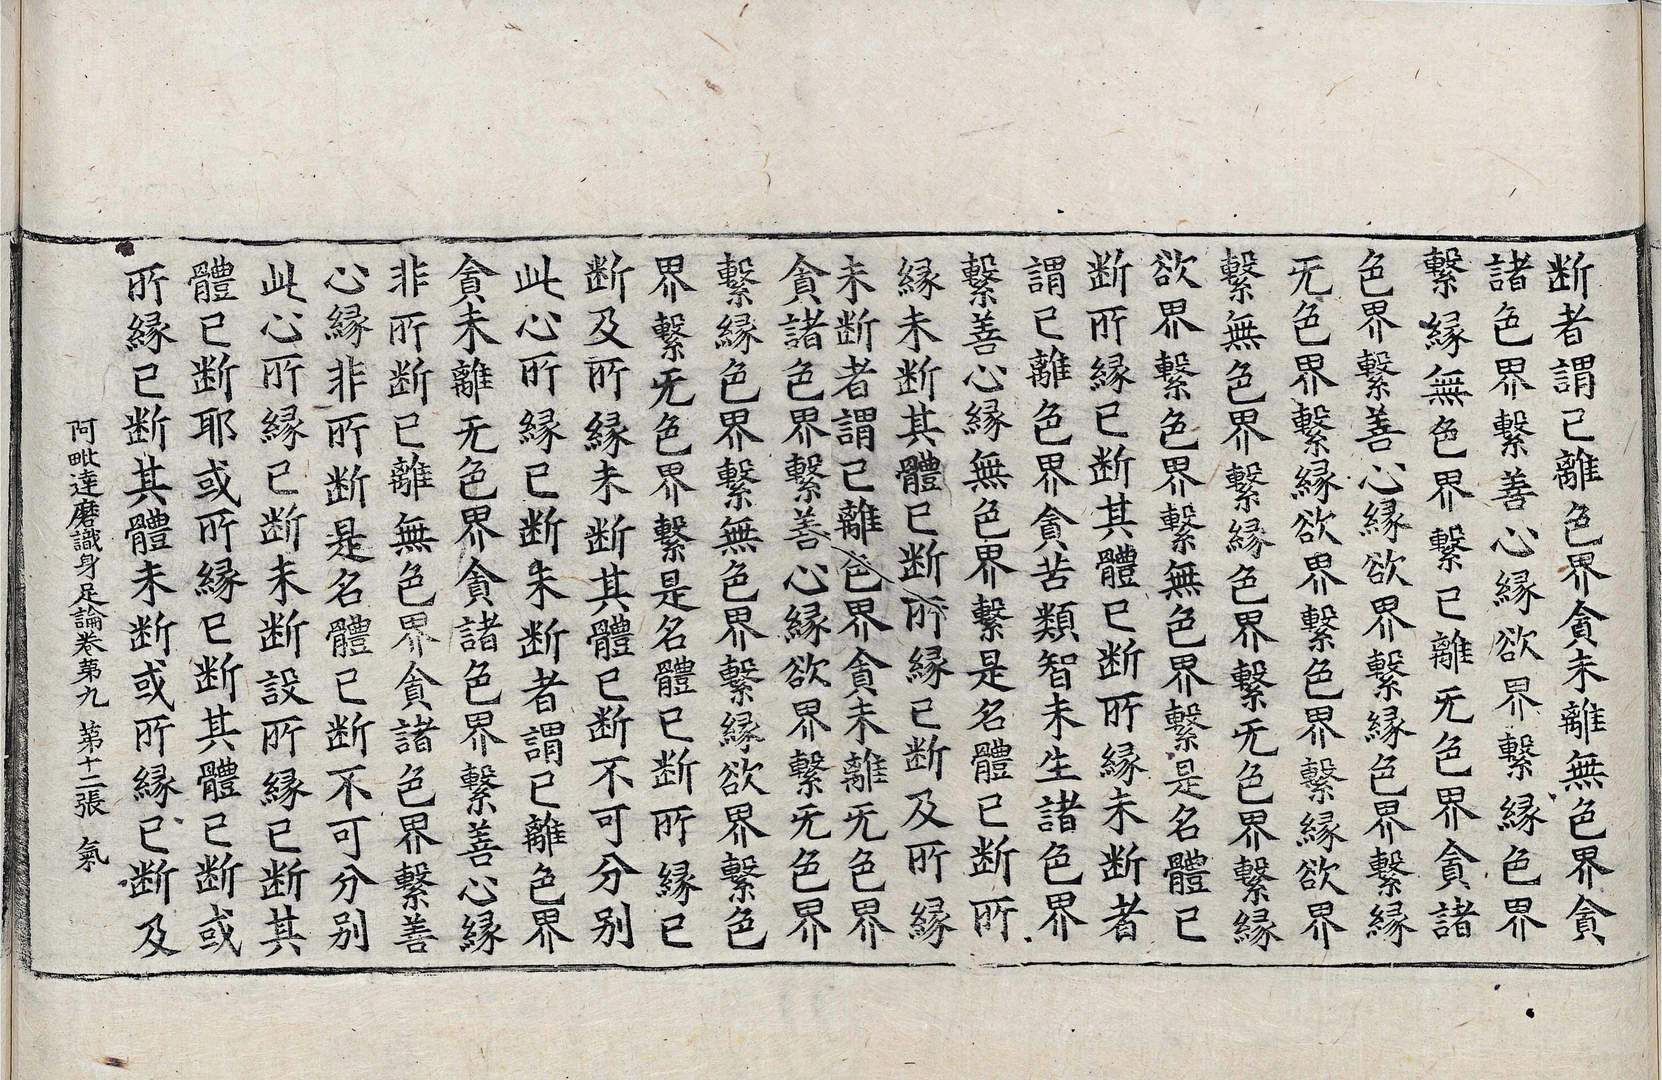 断者謂已離色界貪未離無色界貪
諸色界繫善心縁欲界繫縁色界
繫縁無色界繫已離无色界貪諸
色界繫善心縁欲界繫縁色界繫縁
无色界繫縁欲界繫色界繫縁欲界
繫無色界繫縁色界繫无色界繫縁
欲界繫色界繫無色界繫是名體已
断所縁已断其體已断所縁未断者
謂已離色界貪苦類智未生諸色界
繫善心縁無色界繫是名體已断所
縁未断其體已断所縁已断及所縁
未断者謂已離色界貪未離无色界
貪諸色界繫善心縁欲界繫无色界
繫縁色界繫無色界繫縁欲界繫色
界繫无色界繫是名體已断所縁已
断及所縁未断其體已断不可分别
此心所縁已断未断者謂已離色界
貪未離无色界貪諸色界繫善心縁
非所断已離無色界貪諸色界繫善
心縁非所断是名體已断不可分别
此心所縁已断未断設所縁已断其
體已断耶或所縁已断其體已断或
所縁已断其體未断或所縁已断及
阿毗達磨識身足論卷第九 第十二張 氣